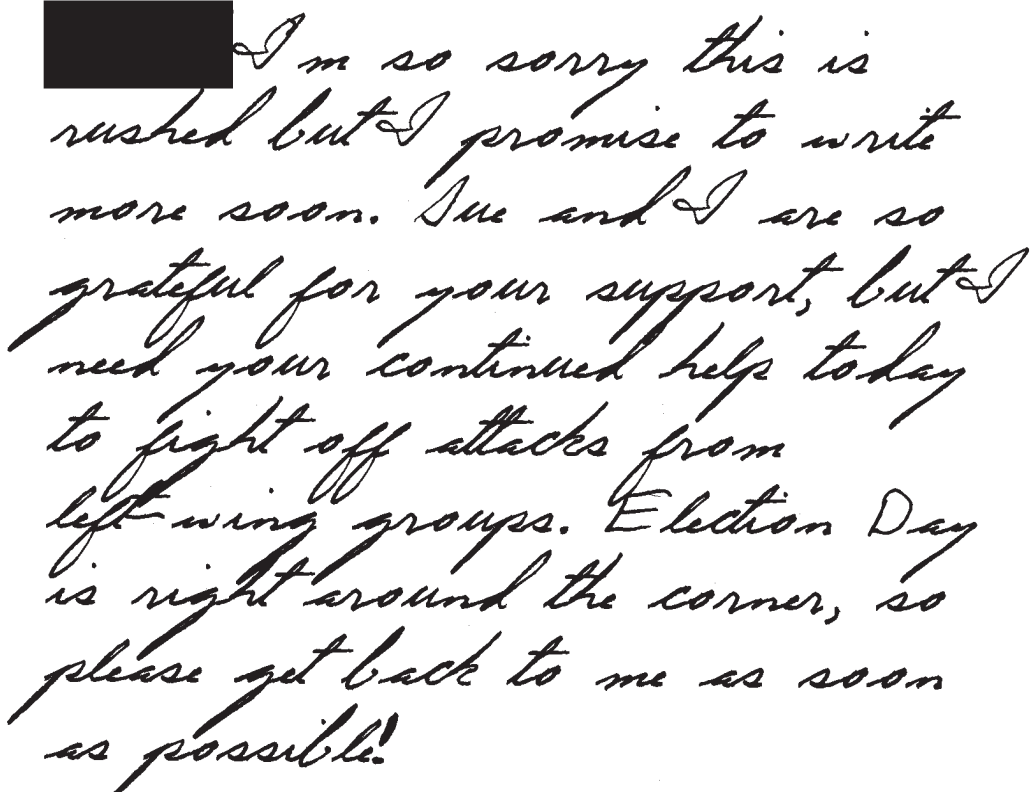 I'm so sorry this is
rushed but I promise to write
more soon. Sue and I are so
grateful for your support, but I
need your continued help today
to fight off attacks from
left-wing groups. Election Day
is right around the corner, so
please get back to me as soon
as possible!